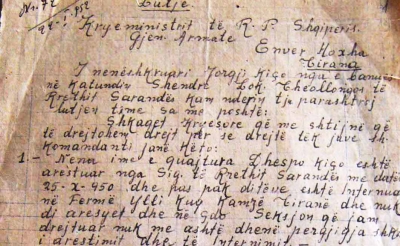 Lutje
Kryeministrit të R. P. Shqipëris
Gjen. Armate
Enver Hoxha
Tirana
I nënëshkruari Jorgji Kiço nga e banues
në katundin Shëndre Lok. Theollongos të
Krethit Sarandës kam nderin t'ju parashtroj
lutjen time sa më poshtë:
Shkaget Kryesore që më shtijnë që
të drejtohem drejt për së drejti tek juve sh.
Komandanti janë këto:
1.- Nëna ime e quajtura Zhespo Kiço eshtë
arestuar nga Sig. të Krethit Sarandës më datë
25-X-950 dhe pas pak ditëve eshtë Internua
në Fermë Ylli Kuq Kamzë Tiranë dhe nuk
di arësyet dhe në çdo Seksjon që jam
drejtuar nuk më ashtë dhënë përgjigja shka
i arestimit dhe të Internimit.-